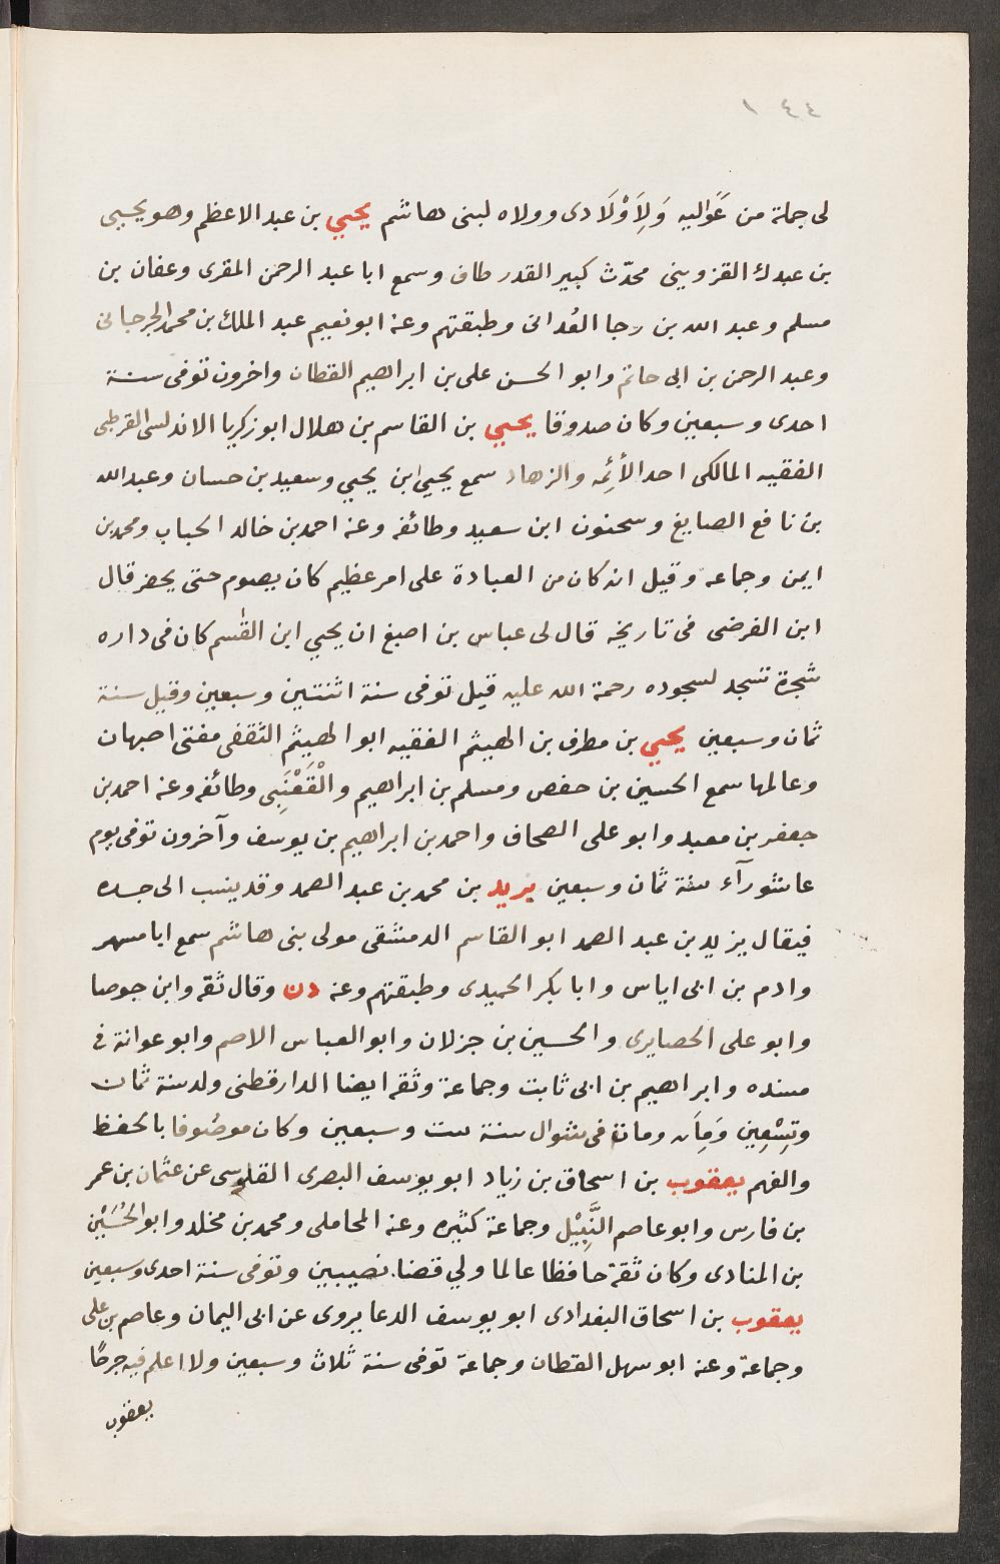 ١٤٤
لى جملة من عَوَاليه وَلِأَوْلَادى وولاه لبنى هاشم يحيي بن عبد الاعظم وهو يحيى
بن عبدك القزوينى محدّث كبير القدر طاف وسمع ابا عبد الرحمن المقرى وعفان بن
مسلم وعبد الله بن رجا الغُدانى وطبقتهم وعنه ابو نعيم عبد الملك بن محمد الجرجانى
وعبد الرحمن بن ابى حاتم وابو الحسن على بن ابراهيم القطان واخرون توفى سنة
احدى وسبعين وكان صدوقا يحيي بن القاسم بن هلال ابو زكريا الاندلسى القرطبى
الفقيه المالكى احد الأئِمه والزهاد سمع يحيي ابن يحيي وسعيد بن حسان وعبد الله
بن نافع الصايغ وسحنون ابن سعيد وطائفه وعنه احمد بن خالد الحباب ومحمد بن
ايمن وجماعه وقيل انه كان من العبادة على امر عظيم كان يصوم حتى يحضر قال
ابن الفرضى فى تاريخه قال لى عباس بن اصبغ ان يحيي ابن القٰسم كان فى داره
شجرة تسجد لسجوده رحمة الله عليه قيل توفى سنة اثنتين وسبعين وقيل سنة
ثمان وسبعين يحيي بن مطرف بن الهيثم الفقيه ابو الهيثم الثقفى مفتى اصبهان
وعالمها سمع الحسين بن حفص ومسلم بن ابراهيم والْقَعْنَبِى وطائفه وعنه احمد بن
جعفر بن معبد وابو على الصحاف واحمد بن ابراهيم بن يوسف وآخرون توفى يوم
عاشورآء سنة ثمان وسبعين يزيد بن محمد بن عبد الصمد وقد ينسب الى جده
فيقال يزيد بن عبد الصمد ابو القاسم الدمشقى مولى بنى هاشم سمع ابا مسهر
وادم بن ابى اياس وابا بكر الحميدى وطبقتهم وعنه دن وقال ثقه وابن جوصا
وابو على الحصايرى والحسين بن جزلان وابو العباس الاصم وابو عوانة فى
مسنده وابراهيم بن ابى ثابت وجماعة وثقه ايضا الدارقطنى ولد سنة ثمان
وتِسْعِين وَمِأَه ومات فى شوال سنة ست وسبعين وكان موصُوفا بالحفظ
والفهم يعقوب بن اسحاق بن زياد ابو يوسف البصرى القلوسى عن عثمان بن عمر
بن فارس وابو عاصم النَّبِيْل وجماعة كثيره وعنه المحاملى ومحمد بن مخلد وابو الحُسَيْن
بن المنادى وكان ثقة حافظا عالما ولي قضا نصيبين وتوفى سنة احدى وسبعين
يعقوب بن اسحاق البغدادى ابو يوسف الدعا يروى عن ابى اليمان وعاصم بن على
وجماعة وعنه ابو سهل القطان وجماعة توفى سنة ثلاث وسبعين ولا اعلم فيه جرحًا
يعقوب